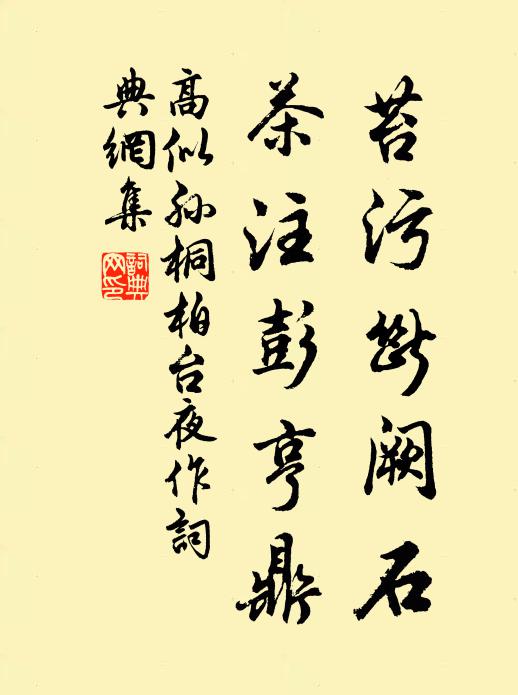 苔污断阙石
茶注彭亨鼎
高似孙桐柏台夜作詞
典網集
詞典网印